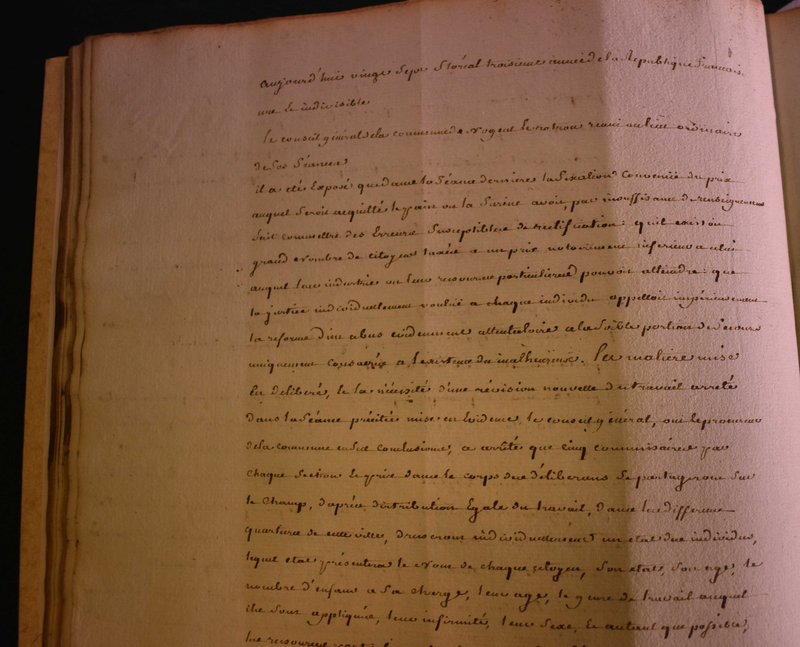 aujourd'hui vingt sept floréal troisieme année de la République françoise
une et indivisible
le conseil général de la commune de Nogent le rotrou reuni au lieu ordinaire
de ses séances
il a été Exposé que dans la séance derniere la fixation Convenüe du prix
auquel seroit acquitté le pain ou la farine avoit par insuffisance de renseignemens
fait commettre des Erreurs susceptibles de rectification: qu'il existoit
grand nombre de citoyens taxés a un prix notoirement inferieur a celui
auquel leur industrie ou leurs ressources particulieres pouvoit atteindre: que
la justice individuellement voulue a chaque individu appelloit impérieusement
la reforme d'un abus evidemment attentatoire a la foible portion de secours
uniquement consacrée a l'existence du malheureux. la matiere mise
En deliberé, et la nécessité d'une révision nouvelle du travail arreté
dans la séance précitée mise en Evidence, le conseil général, oui le procureur
de la commune en ses conclusions, a arrêté que cinq commissaires par
chaque section et pris dans le corps des déliberans se partageront sur
le champ, d'après distribution Egale du travail, dans les differens
quartiers de cette ville, dresseront individuellement un etat des individus,
lequel etat présentera le nom de chaque citoyen, son etat, son age, le
nombre d'enfans a sa charge, leur age, le genre de travail auquel
ils sont appliqués, leurs infirmités, leur sexe, et autant que possible,
les ressources